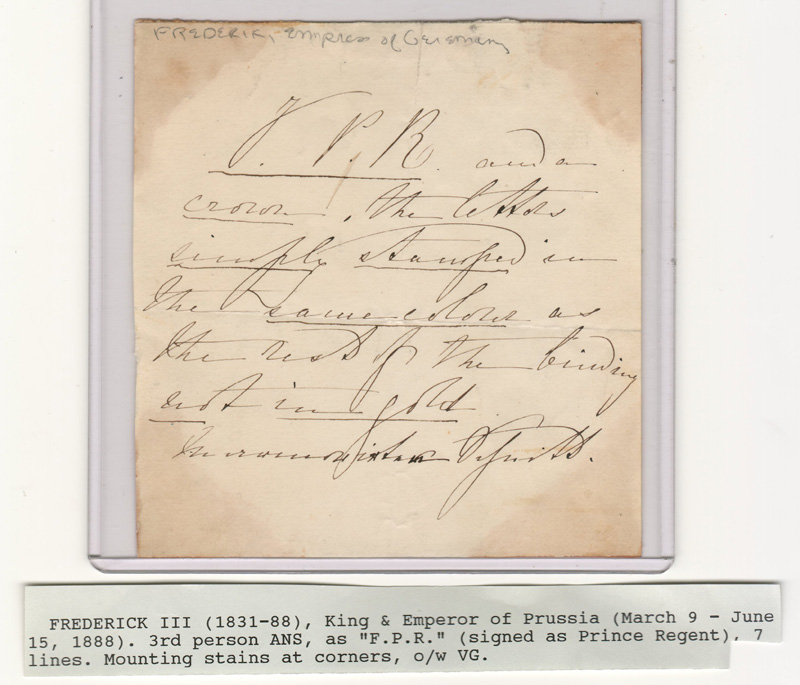 FREDERIK, - Empress of Germany
V. P. R. and a
crown, the letters
simply stamped in
the same colour as
the rest of the binding
not in gold
Schnitt.
FREDERICK III (1831-88), King & Emperor of Prussia (March 9 - June
15, 1888). 3rd person ANS, as "F.P.R." (signed as Prince Regent), 7
lines. Mounting stains at corners, o/w VG.